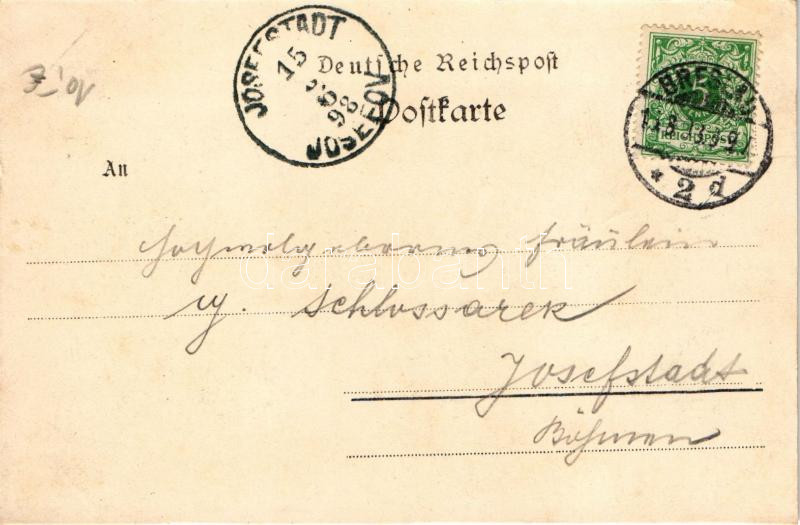 JOSEFSTADT
15
8
98
JOSEFOV
Deutsche Reichspost
Postkarte
BRESLAU
5
REICHSPOST
* 2 d
An
Hochwolgeborenes Fräulein
Schlossarek
Josefstadt
Böhmen
darabanth